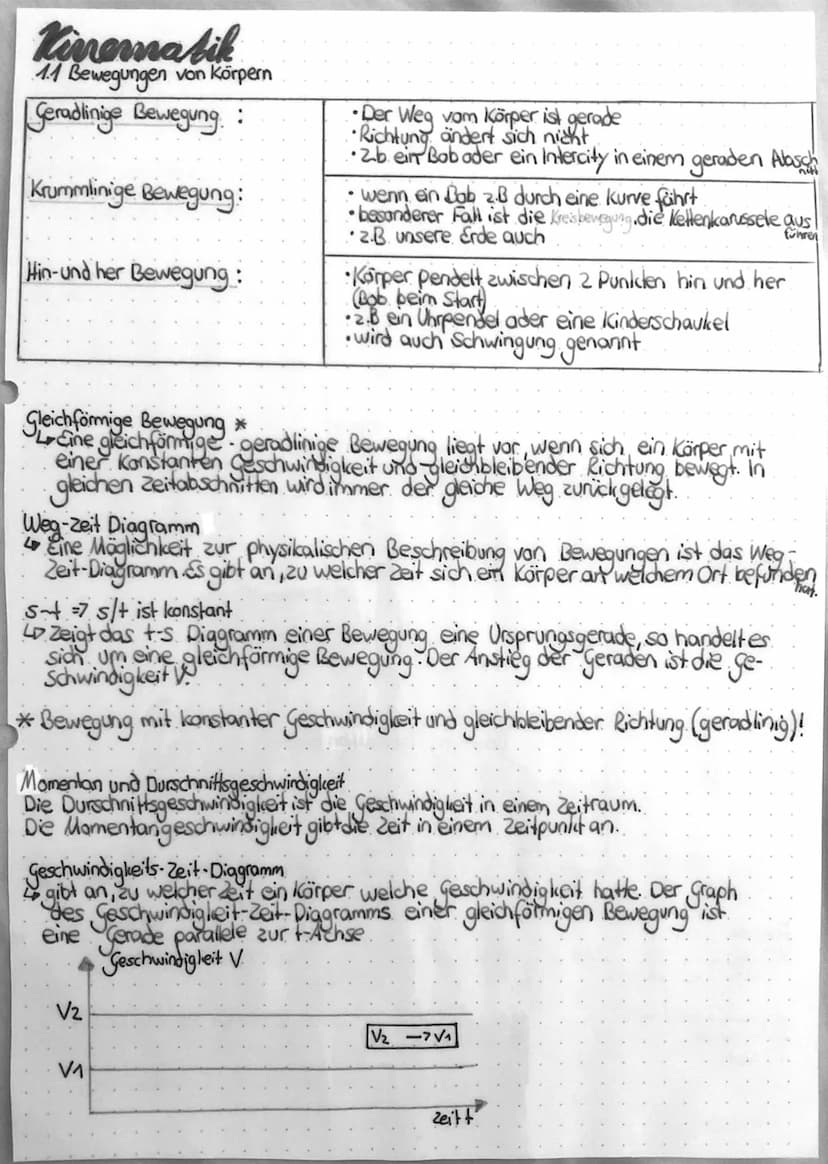 Kinematik
1.1 Bewegungen von Körpern
Geradlinige Bewegung :
• Der Weg vom Körper ist gerade
• Richtung ändert sich nicht
• z.b. ein Bob oder ein Intercity in einem geraden Absch
nitt
Krummlinige Bewegung:
• wenn ein Bob z.B durch eine Kurve führt
• besonderer Fall ist die Kreisbewegung, die Kettenkarussele aus
führen
• z.B. unsere Erde auch
Hin- und her Bewegung :
• Körper pendelt zwischen 2 Punkten hin und her
(Bob beim Start)
• z.B ein Uhrpendel oder eine Kinderschaukel
• wird auch Schwingung genannt
Gleichförmige Bewegung *
↳ Eine gleichförmige - geradlinige Bewegung liegt vor, wenn sich ein Körper mit
einer Konstanten Geschwindigkeit und gleichbleibender Richtung bewegt. In
gleichen Zeitabschnitten wird immer der gleiche Weg zurückgelegt.
Weg-Zeit Diagramm
↳ Eine Möglichkeit zur physikalischen Beschreibung von Bewegungen ist das Weg-
Zeit-Diagramm. Es gibt an, zu welcher Zeit sich ein Körper an welchem Ort befunden
hat.
s~t => s/t ist konstant
↳ Zeigt das t-s Diagramm einer Bewegung eine Ursprungsgerade, so handelt es
sich um eine gleichförmige Bewegung. Der Anstieg der Geraden ist die Ge-
schwindigkeit V.
* Bewegung mit konstanter Geschwindigkeit und gleichbleibender Richtung (geradlinig)!
Momentan und Durschnittsgeschwindigkeit
Die Durschnittsgeschwindigkeit ist die Geschwindigkeit in einem Zeitraum.
Die Momentangeschwindigkeit gibt die Zeit in einem Zeitpunkt an.
Geschwindigkeits-Zeit-Diagramm
↳ gibt an, zu welcher Zeit ein Körper welche Geschwindigkeit hatte. Der Graph
des Geschwindigkeit-Zeit-Diagramms einer gleichförmigen Bewegung ist
eine Gerade parallele zur t-Achse
Geschwindigkeit V
V2
V2 -> V1
V1
Zeit t